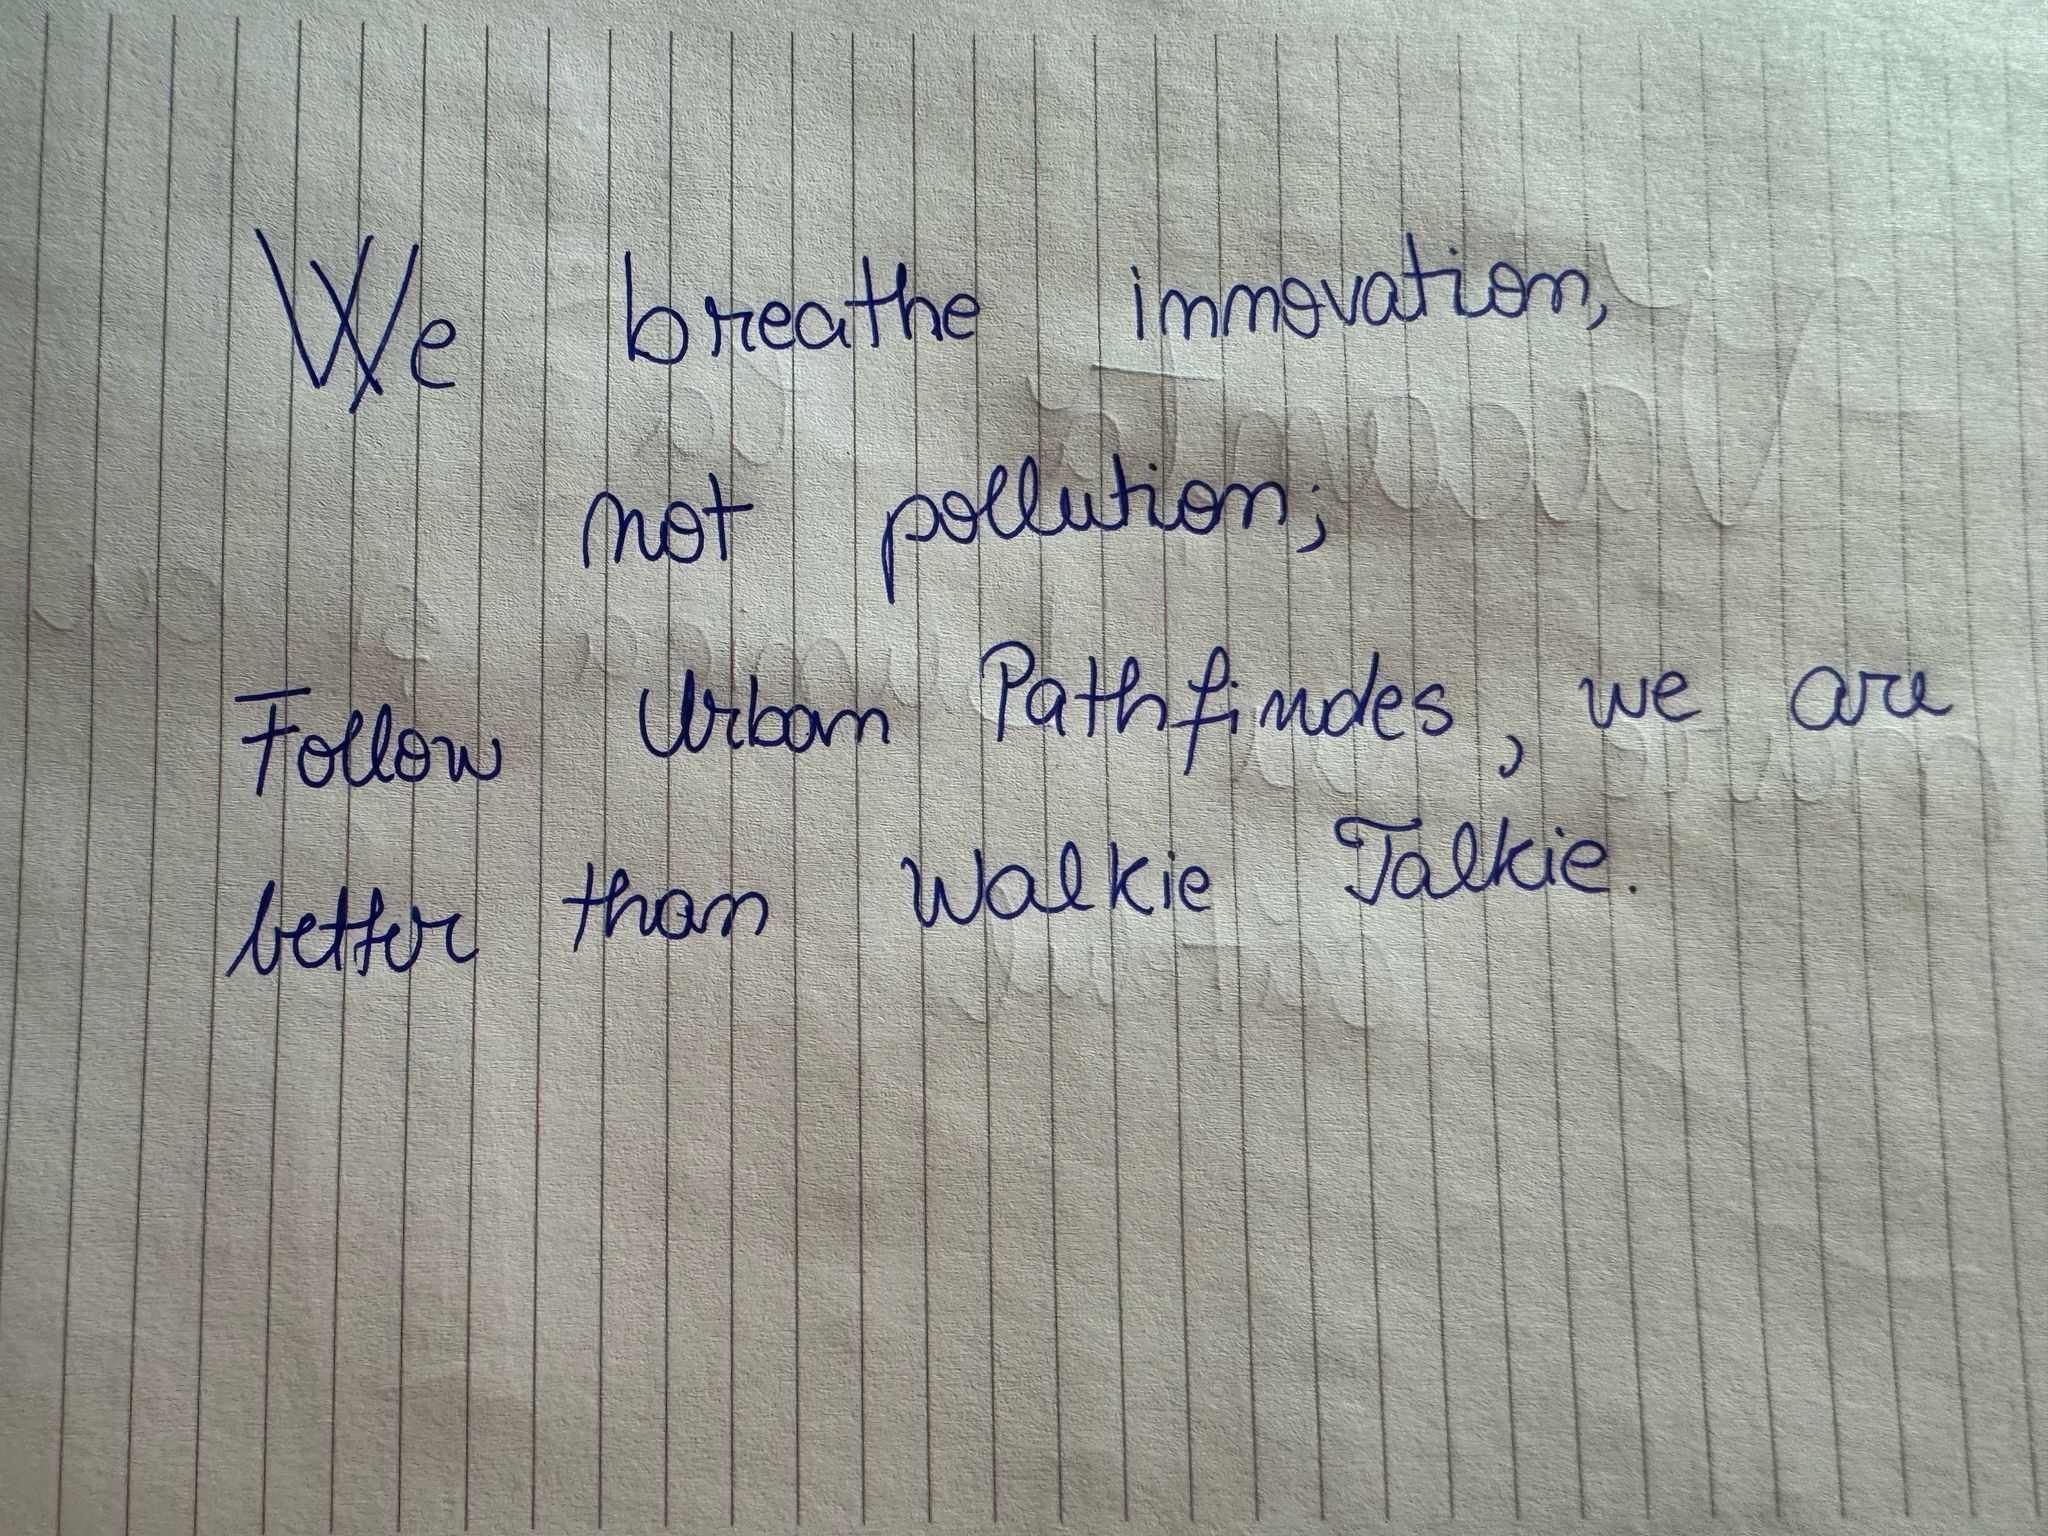 We breathe innovation,
not pollution;
Follow Urban Pathfindes, we are
better than Walkie Talkie.